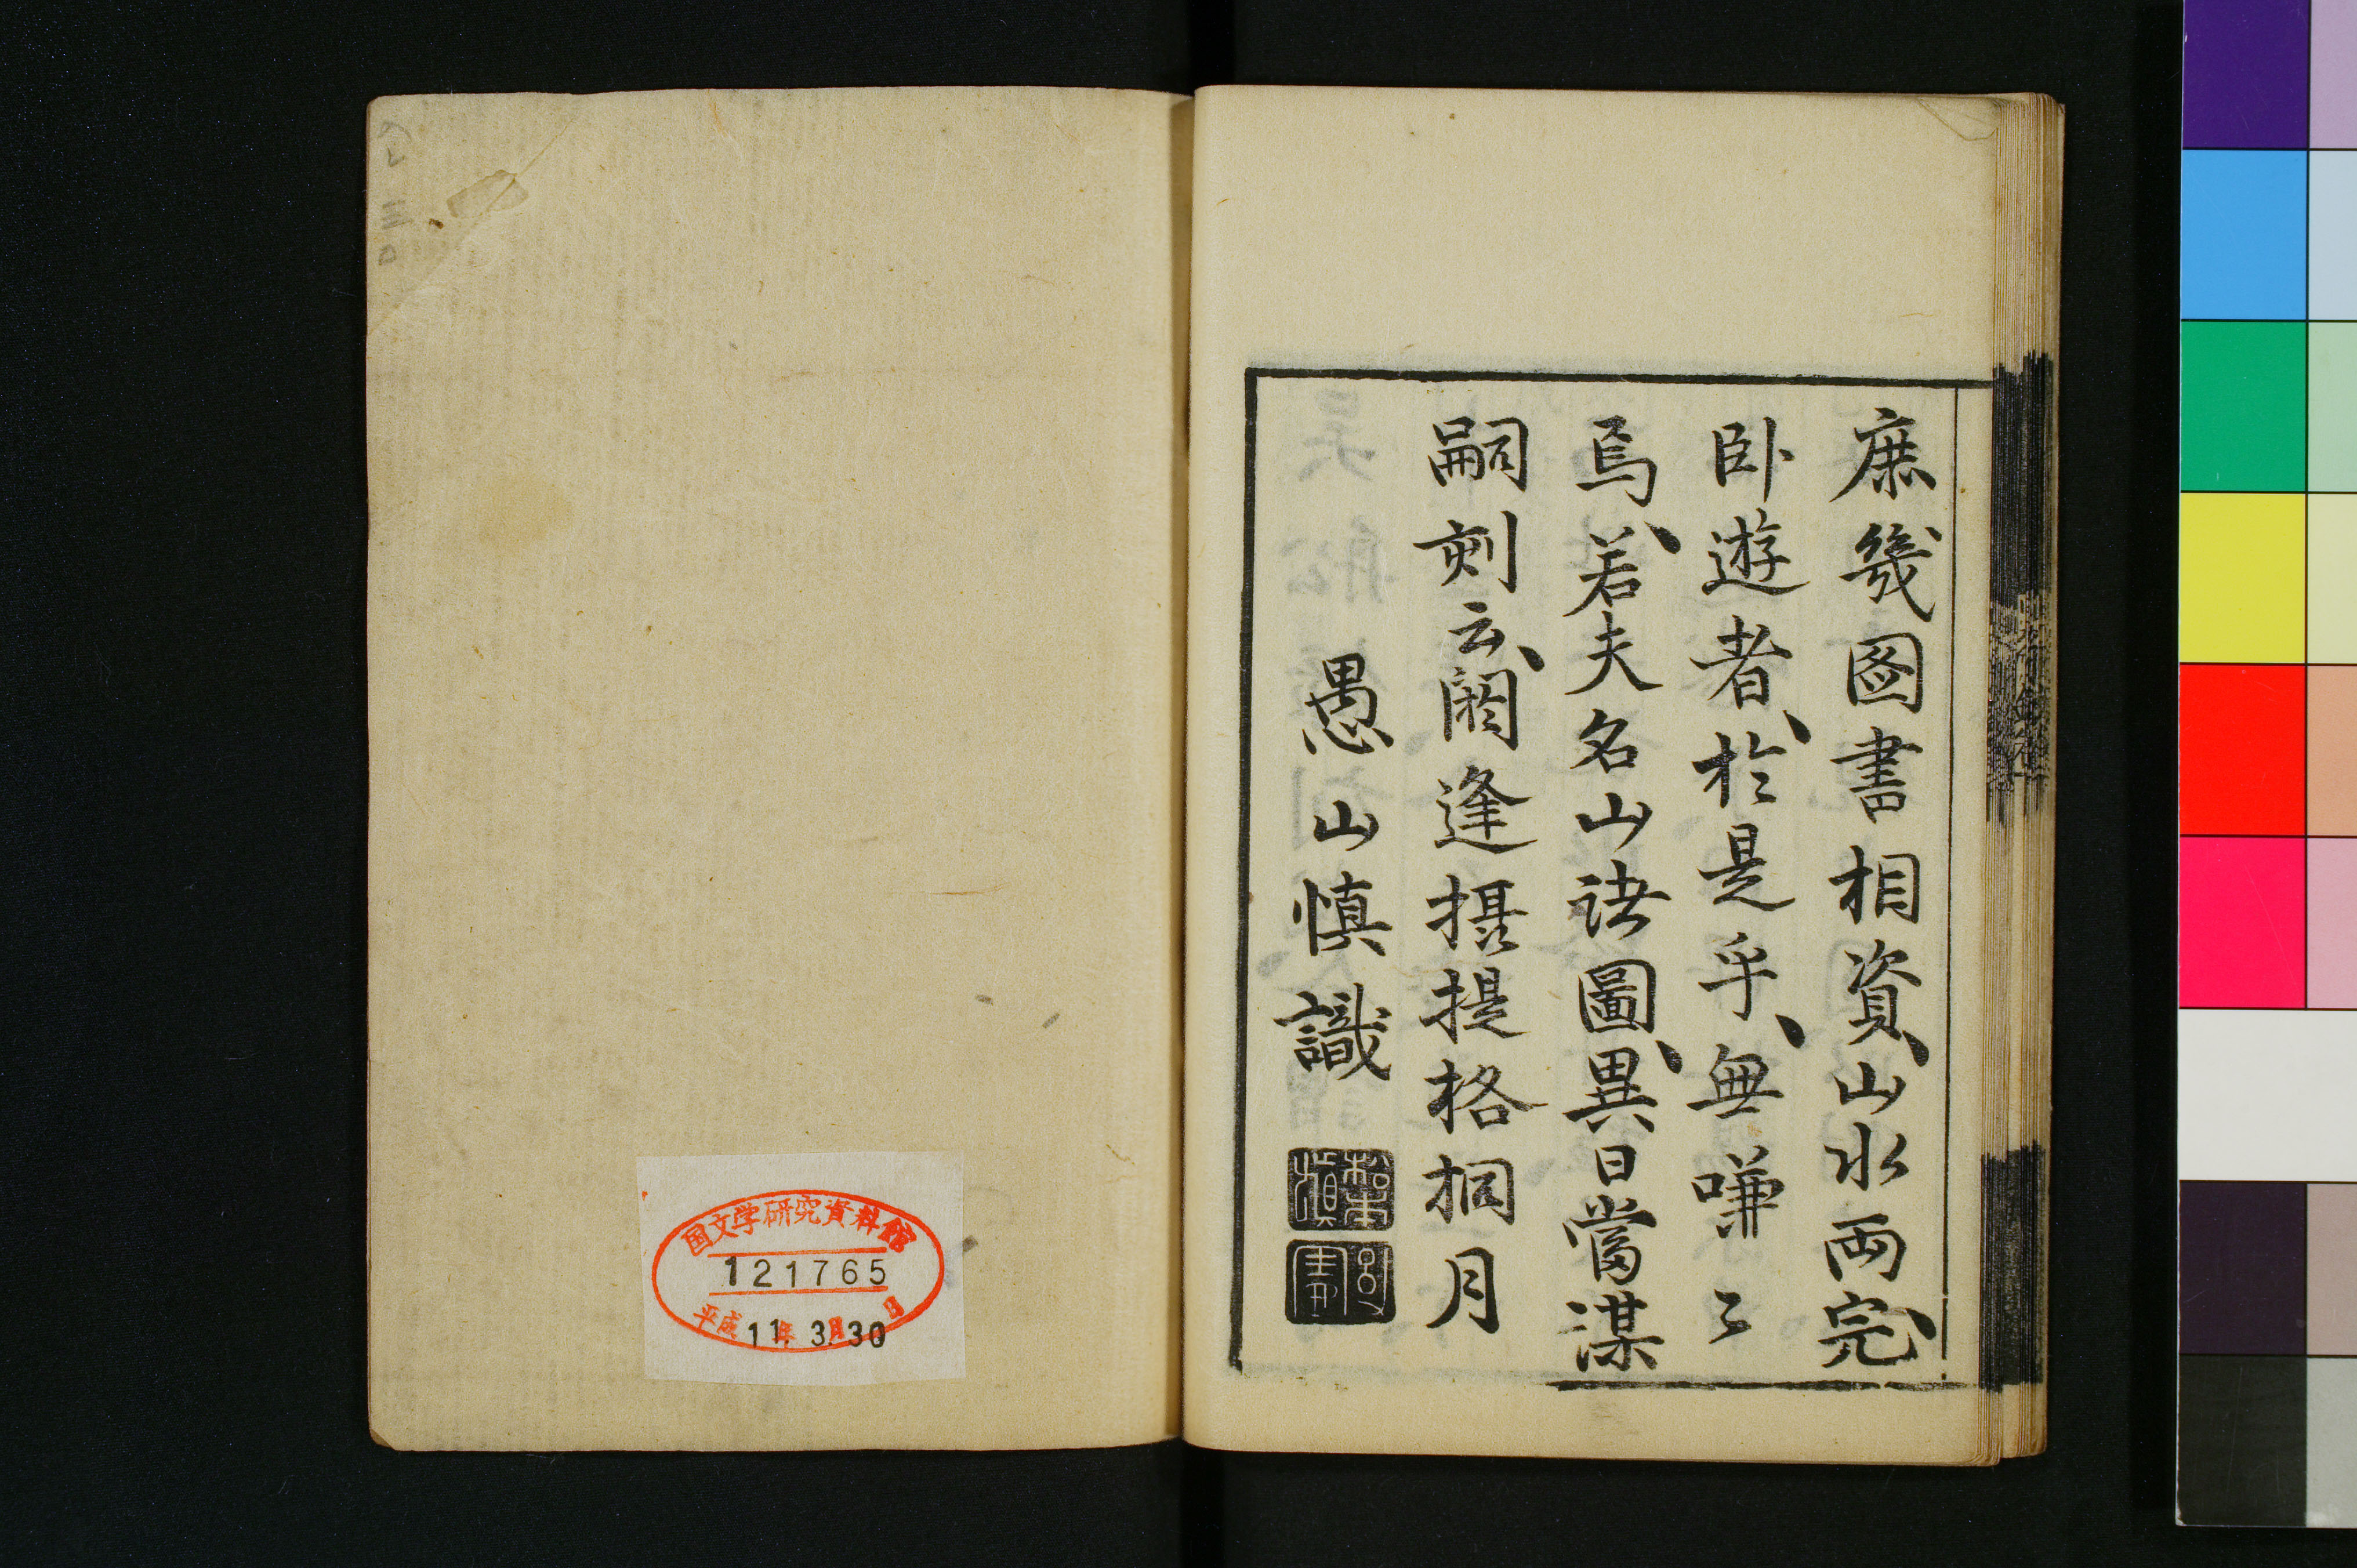 庶幾图書相資、山水両完、
卧遊者、於是乎、無嗛〻
焉、若夫名山諸圖、異日當謀
嗣刻云、閼逢摂提格桐月
愚山慎識
国文学研究資料館
121765
平成11年3月30日